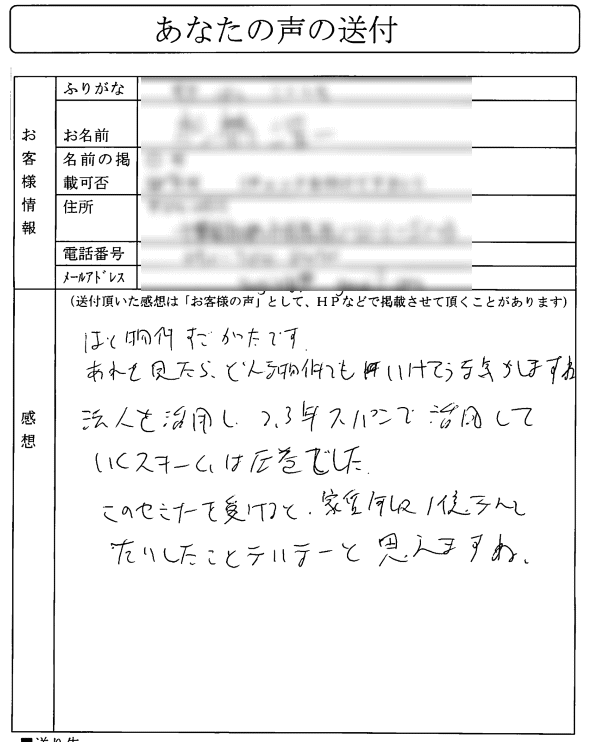 あなたの声の送付
お客様情報
ふりがな
お名前
名前の掲載可否
住所
電話番号
メールアドレス
(送付頂いた感想は「お客様の声」として、HPなどで掲載させて頂くことがあります)
感想
はと物件すごかったです。
あれを見たら、どんな物件でもいけそうな気がしますね
法人を活用し 2,3年スパンで活用して
いくスキームは圧巻でした。
このセミナーを受けると、家賃年収1億なんて
たいしたことナイナーと思えますね。